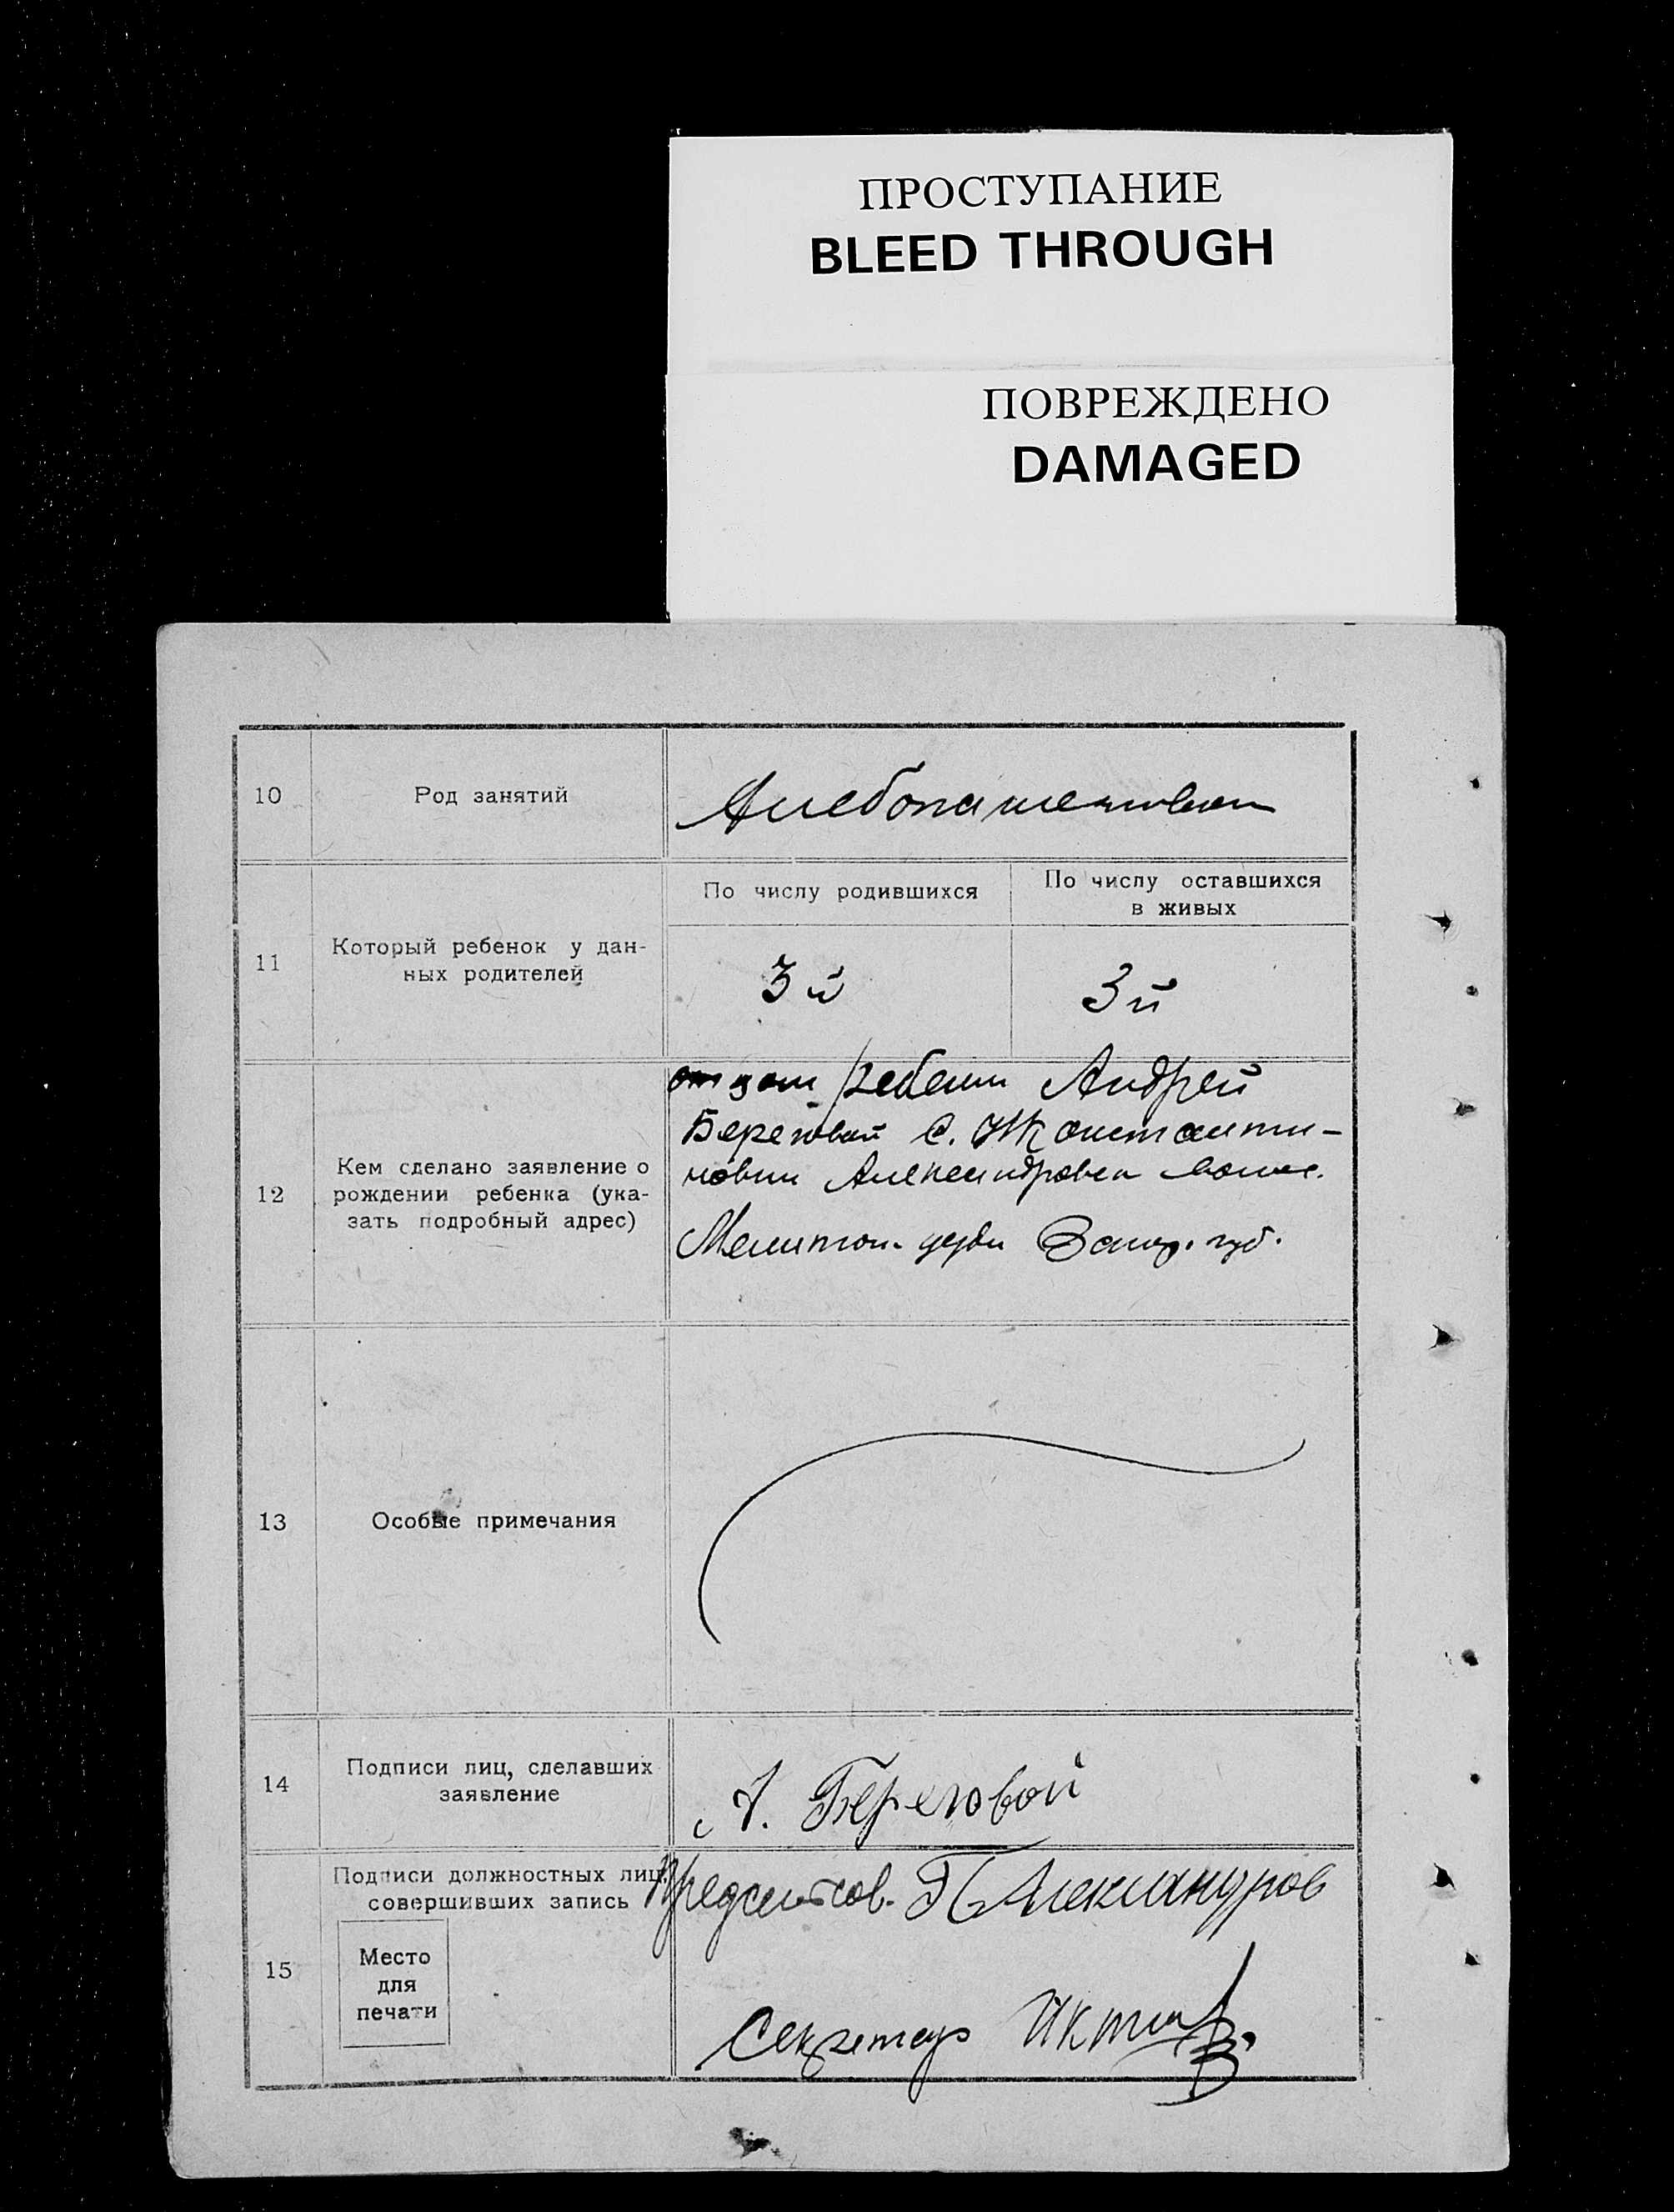 ПРОСТУПАНИЕ
BLEED THROUGH
ПОВРЕЖДЕНО
DAMAGED
10
Род занятий
Хлебопашество
11
Который ребенок у дан-
ных родителей
По числу родившихся
По числу оставшихся
в живых
3й
3й
12
Кем сделано заявление о
рождении ребенка (ука-
зать подробный адрес)
отцом ребенка Андрей
Береговой С. Константи-
новки Александровск волос.
Мелитоп. уезда Запор. губ.
13
Особые примечания
14
Подписи лиц, сделавших
заявление
А. Береговой
15
Подписи должностных лиц,
совершивших запись
Место
для
печати
Предсельсов. Александров
Секретарь